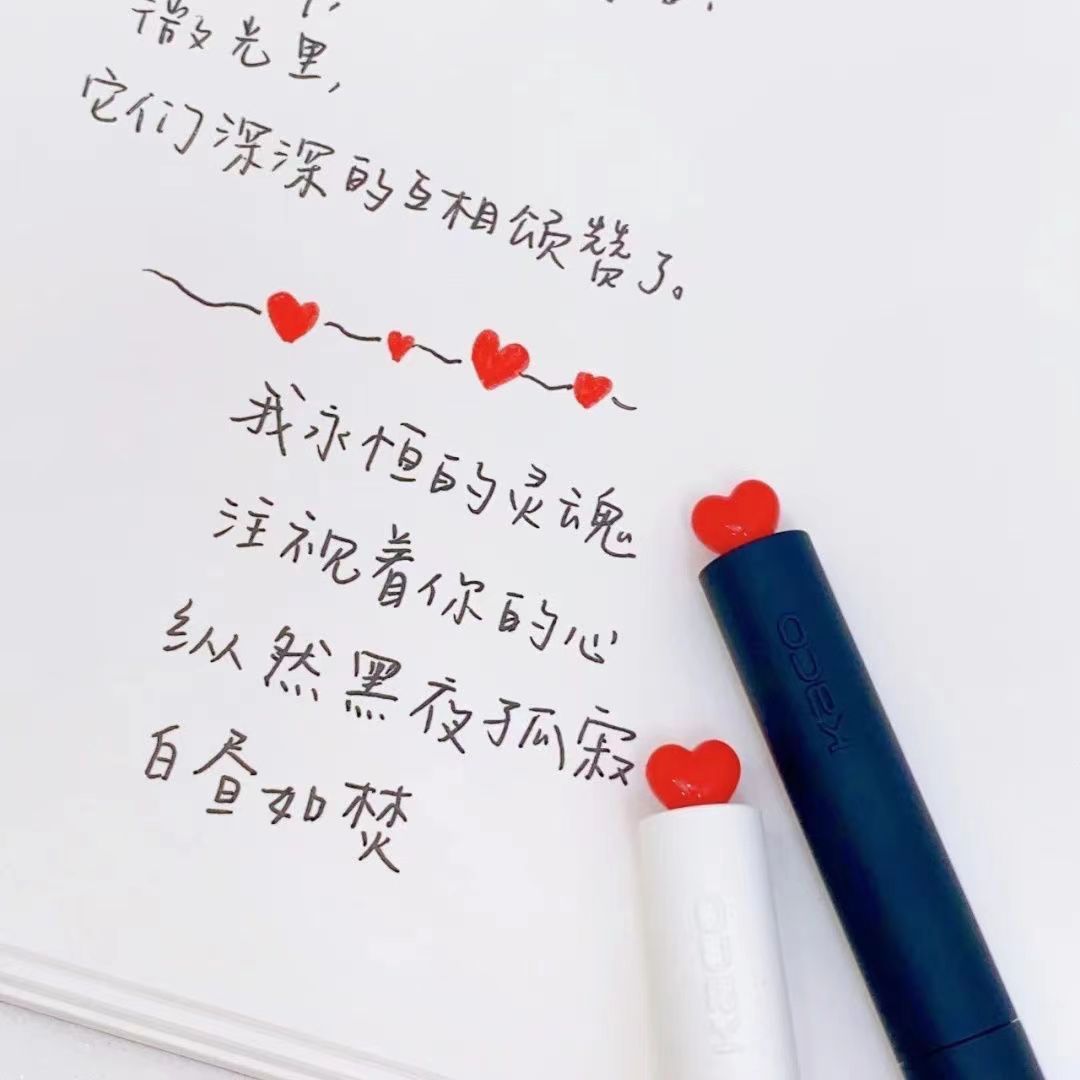 微光里,
它们深深的互相颂赞了。
我永恒的灵魂
注视着你的心
纵然黑夜孤寂
白昼如焚
KACO
KACO